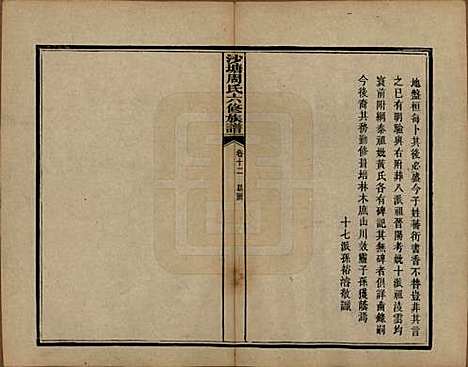 地盤桓每卜其後必盛今子姓蕃衍書香不替豈非其言
之已有明驗與右附葬八派祖晉陽考妣十派祖淩雲均
袁前附綱泰祖妣黃氏各有碑記其無碑者俱詳齒錄嗣
今後裔其務勤修葺培林木庶山川效靈子孫獲蔭焉
十七派孫裕溶敬識
沙塘周氏六修族譜
卷十二